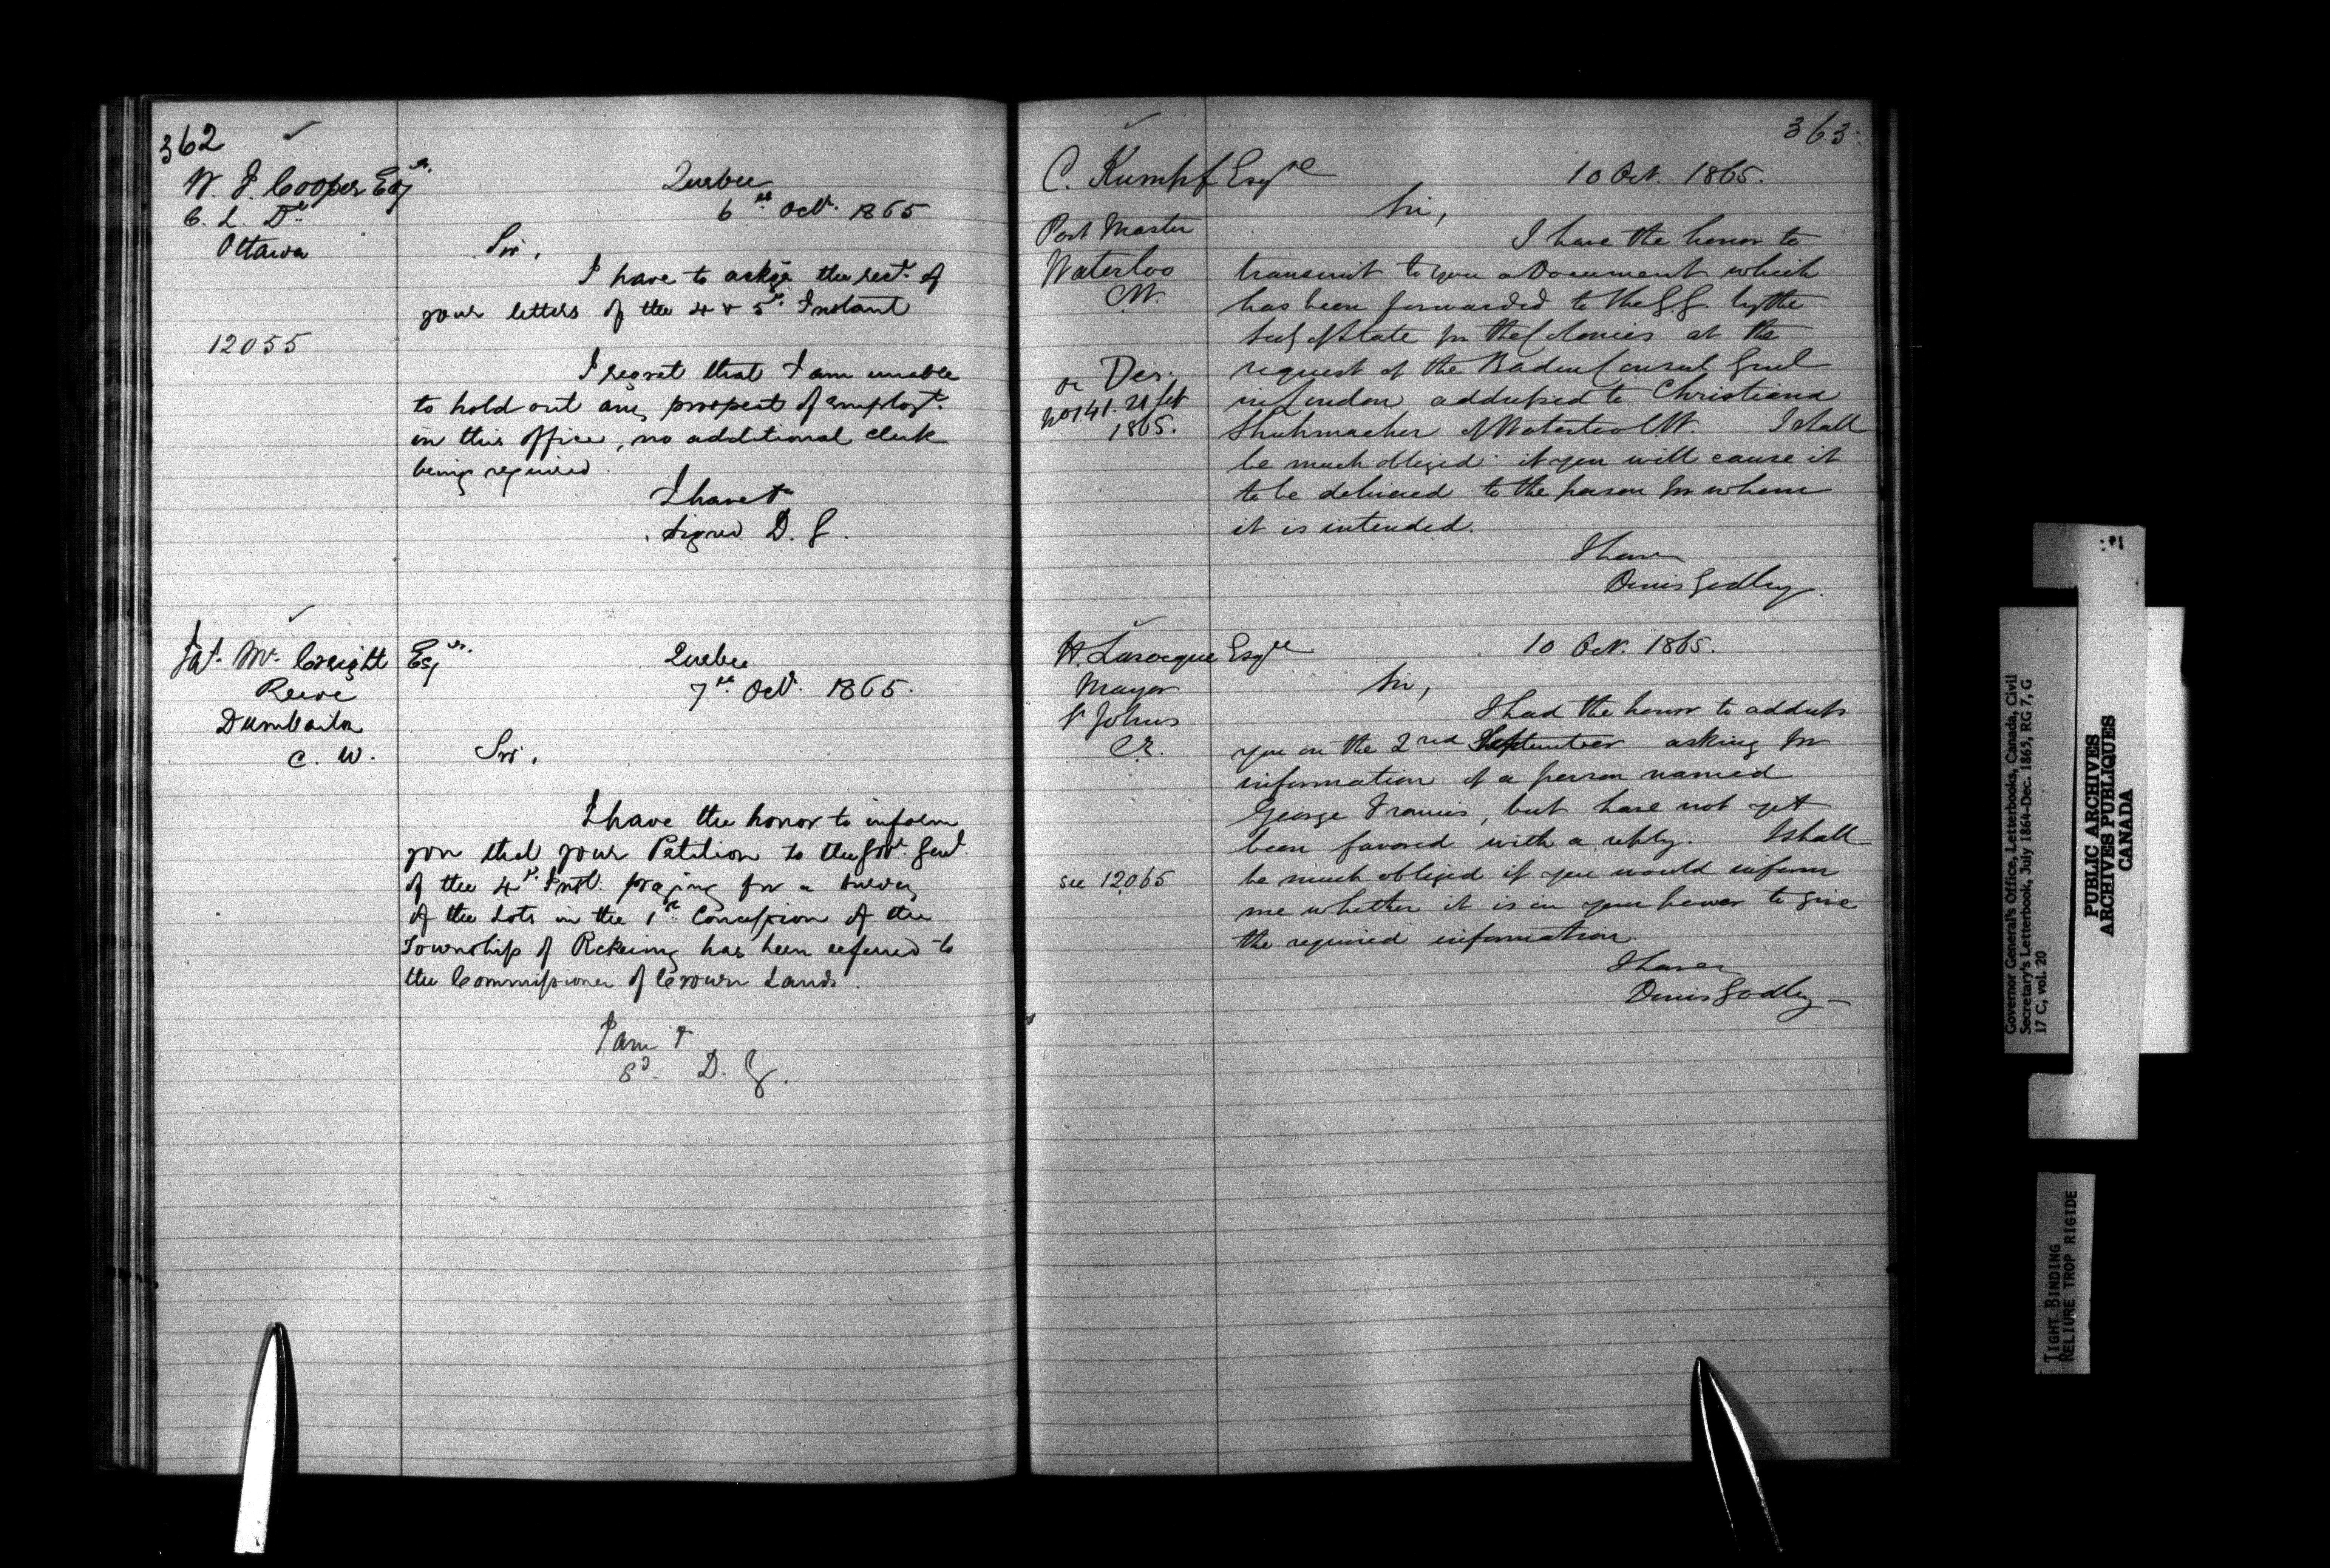 362
W. J. Cooper Esqr.
C. L. Dt
Ottawa
12055
Quebec
6th Octr. 1865
Sir,
I have to ackge the rect. of
your letters of the 4 & 5th. Instant
I regret that I am unable
to hold out any prospect of employt.
in this office, no additional clerk
being required.
I have &c
Signed D. G.
Jas. McCreight Esqr.
Reeve
Dunbarton
C. W.
Quebec
7th. Octr. 1865.
Sir,
I have the honor to inform
you that your Petition to the Govr. Genl.
of the 4th. Inst. praying for a survey
of the Lots in the 1st. Concession of the
Township of Pickering has been referred to
the Commissioner of Crown Lands.
I am &
Sd. D. G.
363
C. Kumpf Esqre
Post Master
Waterloo
C.W.
Des.
No 141. 21 Sept
1865.
10 Oct. 1865.
Sir,
I have the honor to
transmit to you a Document which
has been forwarded to the G.G. by the
Secy of State for the Colonies at the
request of the Baden Consul Genl
in London addressed to Christiana
Shuhmacher of Waterloo C.W. I shall
be much obliged if you will cause it
to be delivered to the person for whom
it is intended.
I have
Denis Godley.
H. Larocque Esqre
Mayor
St Johns
C.E.
see 12065
10 Oct. 1865.
Sir,
I had the honor to address
you on the 2nd September asking for
information of a person named
George Francis, but have not yet
been favored with a reply. I shall
be much obliged if you would inform
me whether it is in your power to give
the required information.
I have &
Denis Godley
Governor General's Office, Letterbooks, Canada, Civil
Secretary's Letterbook, July 1864-Dec. 1865, RG 7, G
17 C, vol. 20
PUBLIC ARCHIVES
ARCHIVES PUBLIQUES
CANADA
TIGHT BINDING
RELIURE TROP RIGIDE